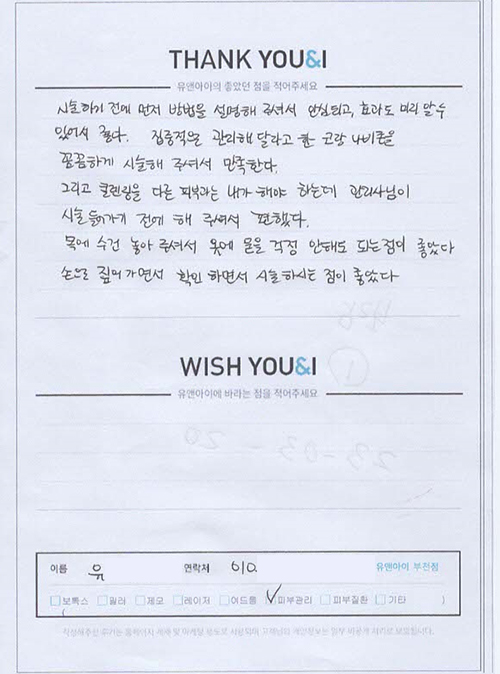 THANK YOU&I
유앤아이의 좋았던 점을 적어주세요
시술하기 전에 먼저 방법을 설명해 주셔서 안심되고, 효과도 미리 알 수
있어서 좋다. 집중적으로 관리해 달라고 한 코랑 나비존을
꼼꼼하게 시술해 주셔서 만족한다.
그리고 클렌징을 다른 피부과는 내가 해야 하는데 관리사님이
시술 들어가기 전에 해 주셔서 편했다.
목에 수건 놓아 주셔서 옷에 물을 걱정 안해도 되는점이 좋았다
손으로 짚어가면서 확인 하면서 시술하시는 점이 좋았다
WISH YOU&I
유앤아이에 바라는 점을 적어주세요
이름 유 연락처 010. 유앤아이 부천점
보톡스 필러 제모 레이저 여드름 피부관리 피부질환 기타 ( )